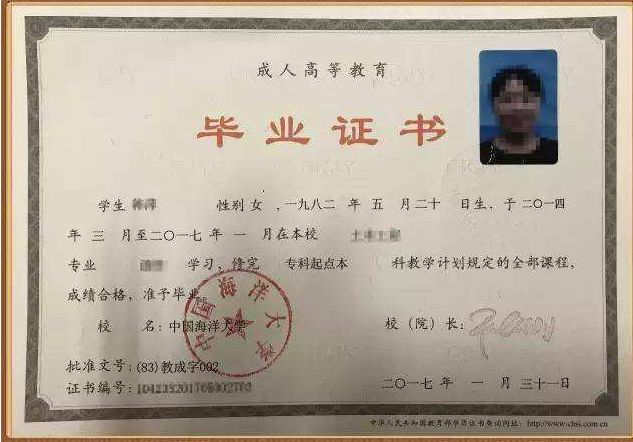 成人高等教育
毕业证书
学生 性别 女 ,一九八二 年 五 月 二十 日生，于 二〇一四
年 三 月至二〇一七 年 一 月在本校
专业 学习，修完 专科起点本 科教学计划规定的全部课程，
成绩合格，准予毕业
校 名：中国海洋大学
校（院）长：
中国海洋大学
批准文号：(83)教成字002
证书编号：
二〇一七 年 一 月 三十一日
中华人民共和国教育部学历证书查询网址：http://www.chsi.com.cn